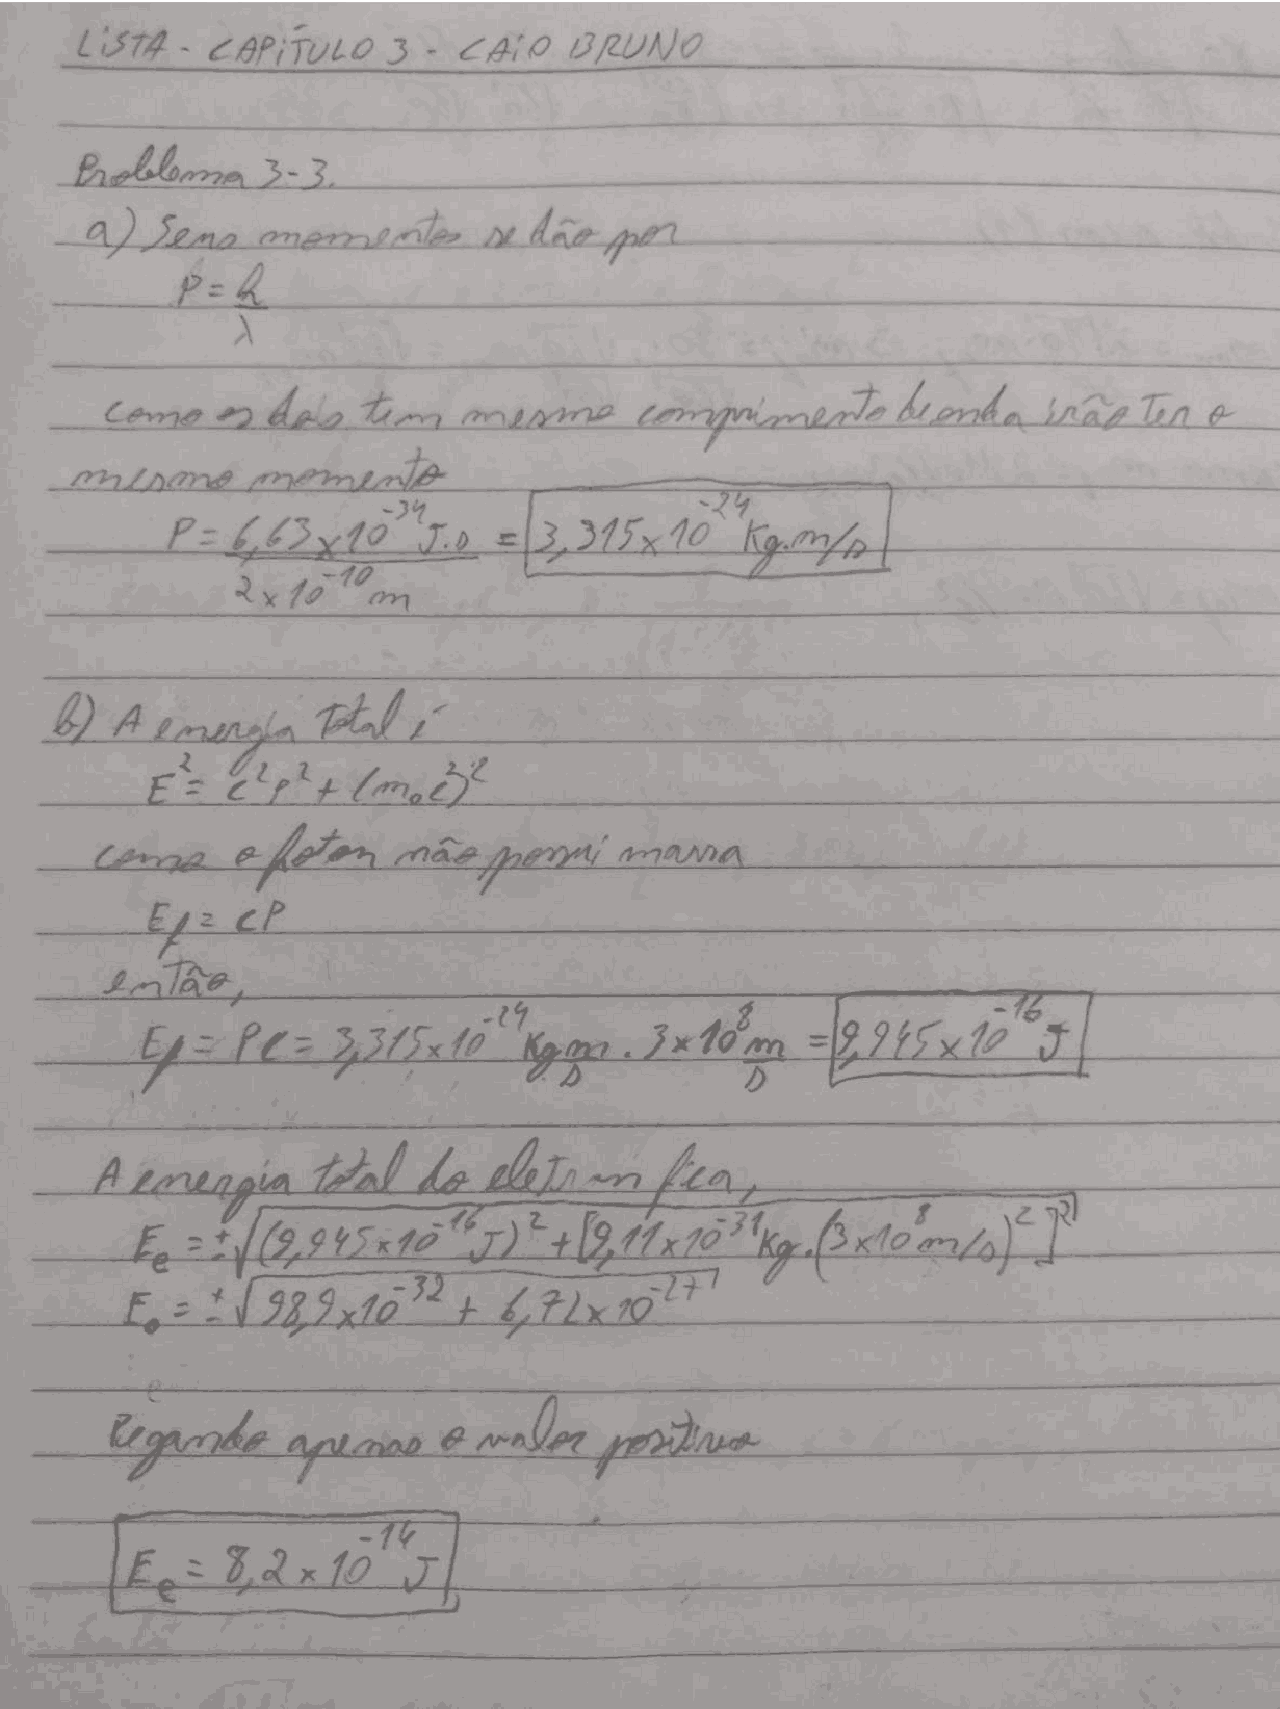 LISTA - CAPÍTULO 3 - CAIO BRUNO
Problema 3-3.
a) Seus momentos se dão por
P = h
λ
como os dois tem mesmo comprimento de onda irão ter o
mesmo momento
P = 6,63 x 10^-34 J.s = 3,315 x 10^-24 Kg.m/s
2 x 10^-10 m
b) A energia total é
E^2 = c^2 p^2 + (m₀c^2)^2
como o foton não possui massa
E_f = cP
então,
E_f = Pc = 3,315 x 10^-24 Kg m/s . 3 x 10^8 m/s = 9,945 x 10^-16 J
A energia total do eletron fica,
E_e = ± √((9,945 x 10^-16 J)^2 + [9,11 x 10^-31 Kg.(3 x 10^8 m/s)^2]^2)
E_e = ± √(98,9 x 10^-32 + 6,72 x 10^-27)
Pegando apenas o valor positivo
E_e = 8,2 x 10^-14 J